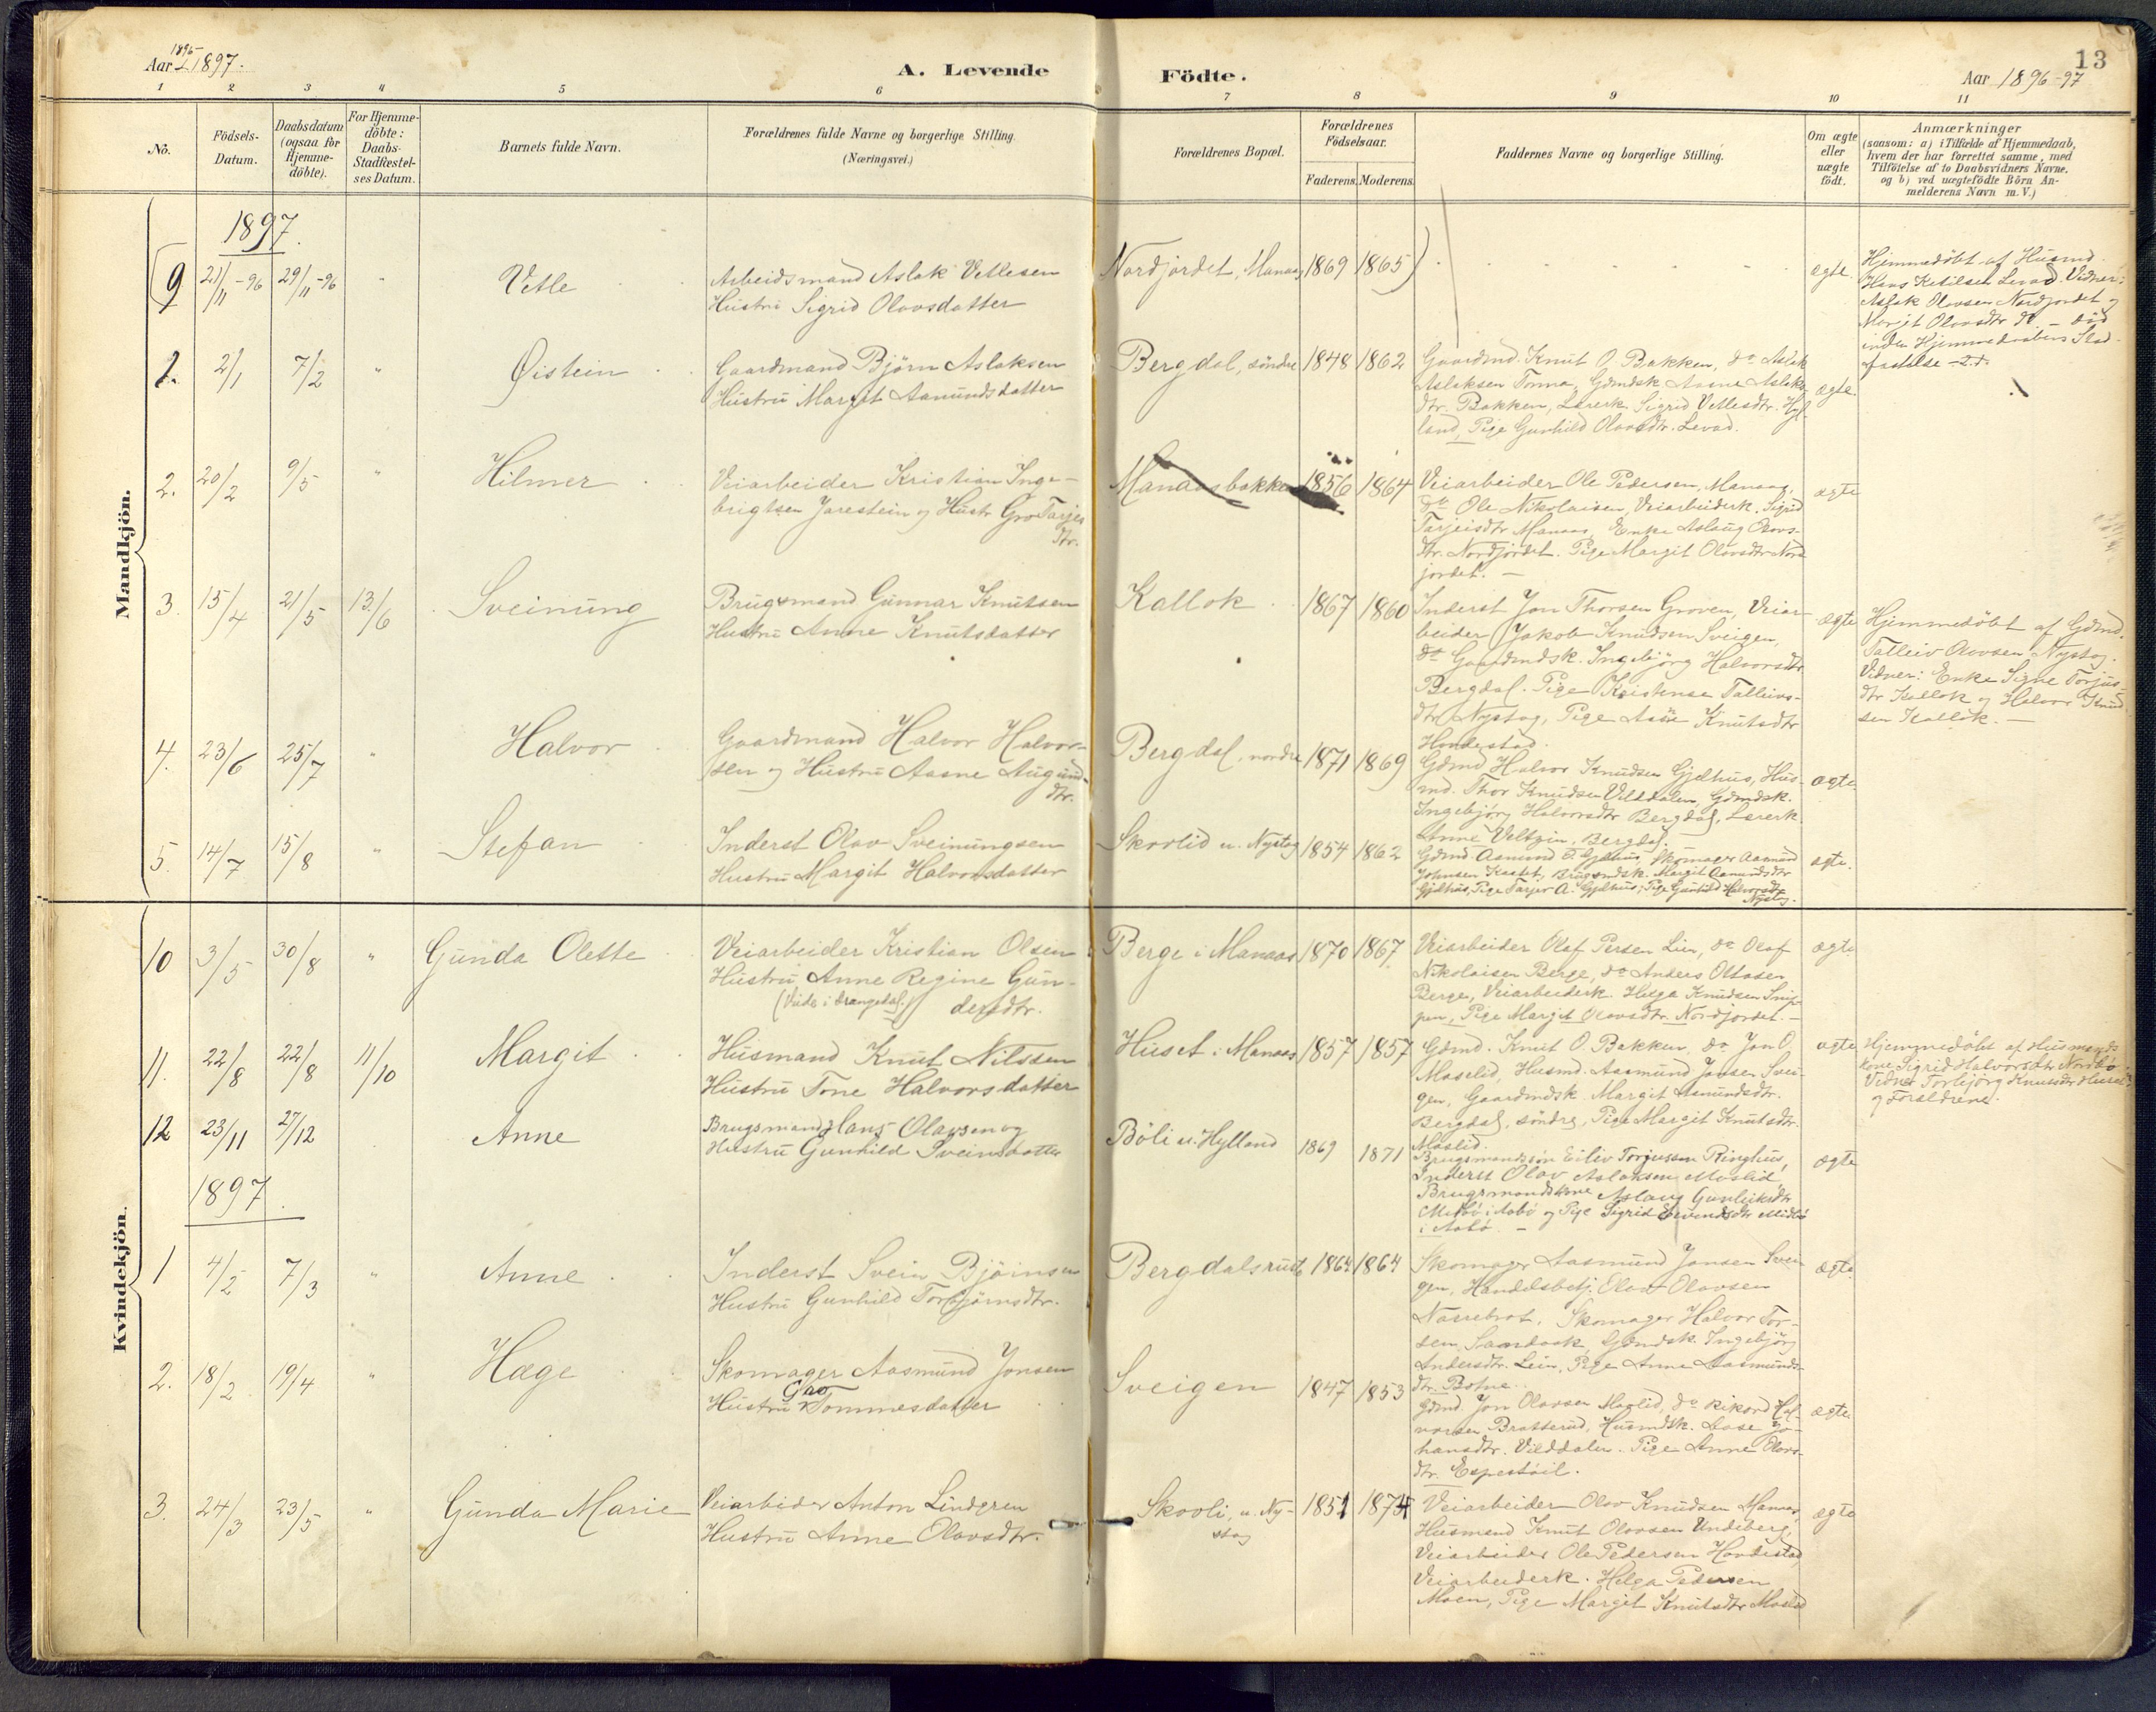 Aar 1896-1897.
A. Levende Födte.
13
Aar 1896-97
1 2 3 4 5 6 7 8 9 10 11
No.
Födsels-Datum.
Daabsdatum (ogsaa for Hjemme-döbte).
For Hjemme-döbte: Daabs-Stadfæstel-ses Datum.
Barnets fulde Navn.
Forældrenes fulde Navne og borgerlige Stilling.
(Næringsvei.)
Forældrenes Bopæl.
Forældrenes Födselsaar.
Faderens. Moderens.
Faddernes Navne og borgerlige Stilling.
Om ægte eller uægte födt.
Anmærkninger
(saasom: a) i Tilfælde af Hjemmedaab, hvem der har forrettet samme, med Tilföielse af to Daabsvidners Navne. og b) ved uægtefödte Börn An-melderens Navn m. V.)
Mandkjön.
1897.
9 21/11-96 29/11-96 " Vetle
Arbeidsmand Aslak Vetlesen
Hustru Sigrid Olavsdatter
Nordjordet, Manaas 1869 1865 ægte.
Hjemmedöbt af Husmd.
Hans Ketilsen Levad. Vidner:
Aslak Olavsen Nordjordet og
Margit Olavsdtr do - död
inden Hjemmedaabens Stad-
fæstelse
1. 2/1 7/2 " Øistein
Gaardmand Björn Aslaksen
Hustru Margit Aamundsdatter
Bergdal, söndre 1848 1862
Gaardmd. Knut O. Bakken, do Aslak
Aslaksen Tonna, Gdmdsk Aasne Aslaks-
dtr. Bakken, Lærerk. Sigrid Vetlesdtr. Hyl-
land, Pige Gunhild Olavsdtr. Levad.
ægte.
2. 20/2 9/5 " Hilmer
Veiarbeider Kristian Inge-
brigtsen Jarestein og Hustr Gro Tarjei
dtr.
Manaasbakken 1856 1864
Veiarbeider Ole Pedersen, Manaas,
do Ole Nikolaisen, Veiarbeiderk. Sigrid
Tarjeisdtr Manaas, Enke Aslaug Olavs-
dtr. Nordjordet. Pige Margit Olavsdtr Nord
jordet. -
ægte
3. 15/4 21/5 13/6 Sveinung
Brugsmand Gunnar Knutsen
Hustru Anne Knutsdatter
Kallok 1867 1860
Inderst Jon Thorsen Groven, Veiar-
beider Jakob Knudsen Sveigen,
do Gaardmdsk. Ingebjörg Halvorsdtr
Bergdal. Pige Kristense Talleivs-
dtr Nystog, Pige Aase Knutsdtr
Hovdestad.
ægte
Hjemmedöbt af Gdmd.
Talleiv Olavsen Nystog.
Vidner: Enke Signe Torjus
dtr Kallok og Halvor Knud
sen Kallok. -
4. 23/6 25/7 " Halvor
Gaardmand Halvor Halvor-
sen og Hustru Aasne Augund-
dtr.
Bergdal, nordre 1871 1869
Gdmd Halvor Knudsen Gjelhus, Hus-
md. Thor Knudsen Vilddalen, Gdmdsk.
Ingebjörg Halvorsdtr Bergdal, Lærerk.
Anne Veltzin, Bergdal.
ægte.
5. 14/7 15/8 " Stefan
Inderst Olav Sveinungsen
Hustru Margit Halvorsdatter
Skovlid u. Nystog 1854 1862
Gdmd. Aamund T. Gjelhus, Skomager Aamund
Johnsen Kastet, Brugsmdsk. Margit Aamundsdtr
Gjelhus, Pige Tarjer A. Gjelhus, Pige Gunhild Halvorsdtr
Nystog.
ægte.
Kvindekjön.
10 3/5 30/8 " Gunda Olette
Veiarbeider Kristian Olsen
Hustru Anne Regine Gun-
(Viede i Drangedal.) dersdtr.
Berge i Manaas 1870 1867
Veiarbeider Olaf Persen Lien, do Olaf
Nikolaisen Berge, do Anders Ottosen
Berge, Veiarbeiderk. Helga Knudsen Snip-
pen, Pige Margit Olavsdtr. Nordjordet. -
ægte
11. 22/8 22/8 11/10 Margit
Husmand Knut Nilssen
Hustru Tone Halvorsdatter
Huset i Manaas 1857 1857
Gdmd. Knut O. Bakken, do Jon O.
Moselid, Husmd. Aasmund Jonsen Svei-
gen, Gaardmdsk. Margit Aamundsdtr.
Bergdal, söndre, Pige Margit Knutsdtr.
Moslid.
ægte
Hjemmedöbt af Husmands
kone Sigrid Halvorsdtr Nordbö.
Vidner Torbjörg Knutsdtr Huset
og Forældrene.
12 23/11 27/12 Anne
Brugsmand Hans Olavsen og
Hustru Gunhild Sveinsdatter
Böli u. Hylland 1869 1871
Brugsmandssön Eiliv Torjussen Ringhus,
Inderst Olav Aslaksen Moslid,
Brugsmandskone Aslaug Gunleiksdtr
Midbö i Aabö og Pige Sigrid Eivendsdtr Midbö
i Aabö. -
ægte
1897.
1 4/2 7/3 " Anne
Inderst Svein Björnsen
Hustru Gunhild Torbjörnsdtr.
Bergdalsrust 1864 1864
Skomager Aasmund Jonsen Svei
gen, Handelsbetj. Olav Olavsen
Næsebrot, Skomager Halvor Tor-
sen, Sandaak, Gdmdsk. Ingebjörg
Andersdtr. Lein, Pige Anne Aasmunds-
dtr. Botne.
ægte.
2. 18/2 19/4 " Hæge
Skomager Aasmund Jonsen
Hustru Gro Tommesdatter
Sveigen 1847 1853
Gdmd. Jon Olavsen Moslid, do Rikard Hal-
vorsen Bratterud, Husmdsk. Aase Jo-
hansdtr. Vilddalen. Pige Anne Olavs-
dtr. Espestöil.
ægte.
3. 24/3 23/5 " Gunda Marie
Veiarbeider Anton Lindgren
Hustru Anne Olavsdtr.
Skovli, u. Ny-
stog
1851 1874
Veiarbeider Olav Knudsen Manaas,
Husmand Knut Olavsen Undeberg,
Veiarbeider Ole Pedersen Hovdestad,
Veiarbeiderk. Helga Pedersen
Moen, Pige Margit Knutsdtr Moslid
ægte